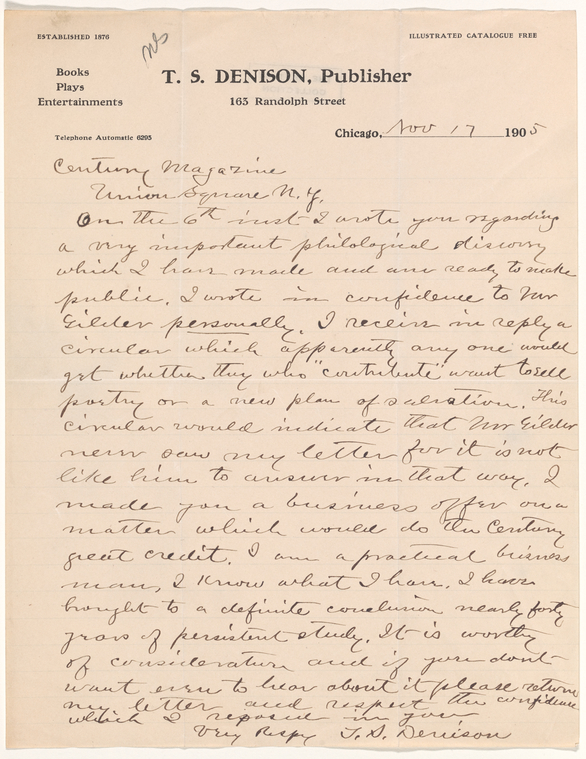 ESTABLISHED 1876
ILLUSTRATED CATALOGUE FREE
Books
Plays
Entertainments
T. S. DENISON, Publisher
163 Randolph Street
Telephone Automatic 6295
Chicago, Nov 17 1905
Century Magazine
Union Square N.Y.
On the 6th inst I wrote you regarding
a very important philological discovery
which I have made and am ready to make
public. I wrote in confidence to Mr
Gilder personally. I receive in reply a
circular which apparently any one would
get whether they who "contribute" want to sell
poetry or a new plan of salvation. This
circular would indicate that Mr Gilder
never saw my letter for it is not
like him to answer in that way. I
made you a business offer on a
matter which would do the Century
great credit. I am a practical business
man, I know what I have. I have
brought to a definite conclusion nearly forty
years of persistent study. It is worthy
of consideration and if you dont
want even to hear about it please return
my letter and respect the confidence
which I reposed in you.
Very Respy T. S. Denison